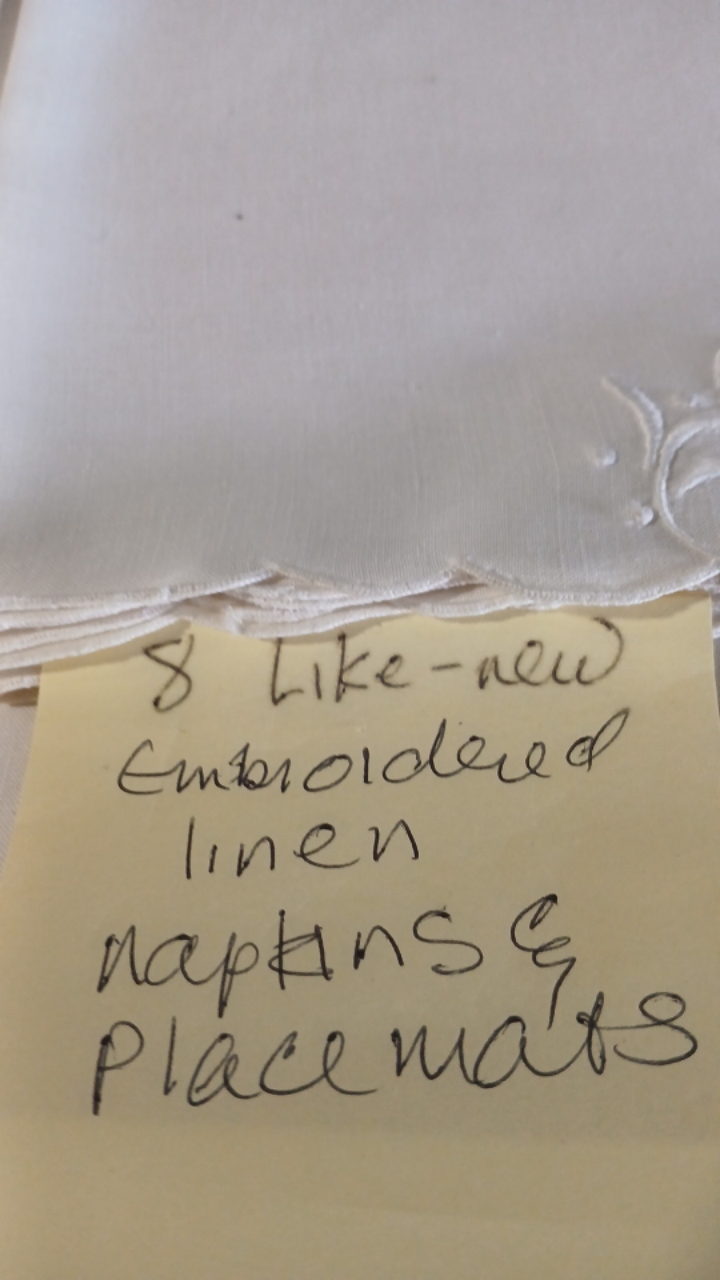 8 Like-new
Embroidered
linen
napkins &
Placemats